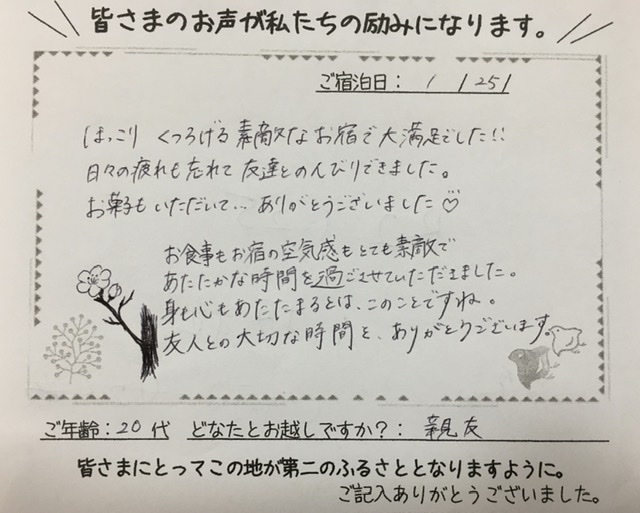 皆さまのお声が私たちの励みになります。
ご宿泊日: 1 / 25
ほっこり くつろげる素敵なお宿で大満足でした!!
日々の疲れも忘れて友達とのんびりできました。
お菓子もいただいて… ありがとうございました♡
お食事もお宿の空気感もとても素敵で
あたたかな時間を過ごさせていただきました。
身も心もあたたまるとは、このことですね。
友人との大切な時間を、ありがとうございます。
ご年齢:20 代 どなたとお越しですか?: 親友
皆さまにとってこの地が第二のふるさととなりますように。
ご記入ありがとうございました。